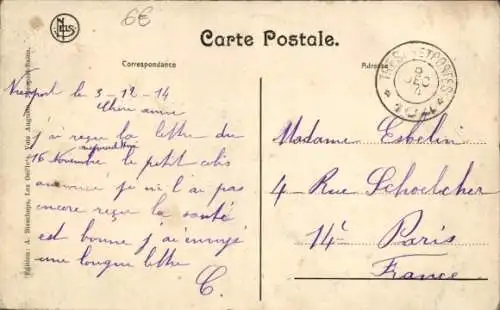 6€
NELS
Carte Postale.
Correspondance
Adresse
TRESOR ET POSTES
9
DEC
14
* 104 *
Nieuport le 3-12-14
Chère amie
j'ai reçu la lettre du
16 Novembre aujourd'hui le petit colis
annoncé je ne l'ai pas
encore reçu la santé
est bonne j'ai envoyé
une longue lettre
C.
Madame Esbelin
4 Rue Schoelcher
14e Paris
France
Edition: A. Dieschops, Les Galeries, Rue